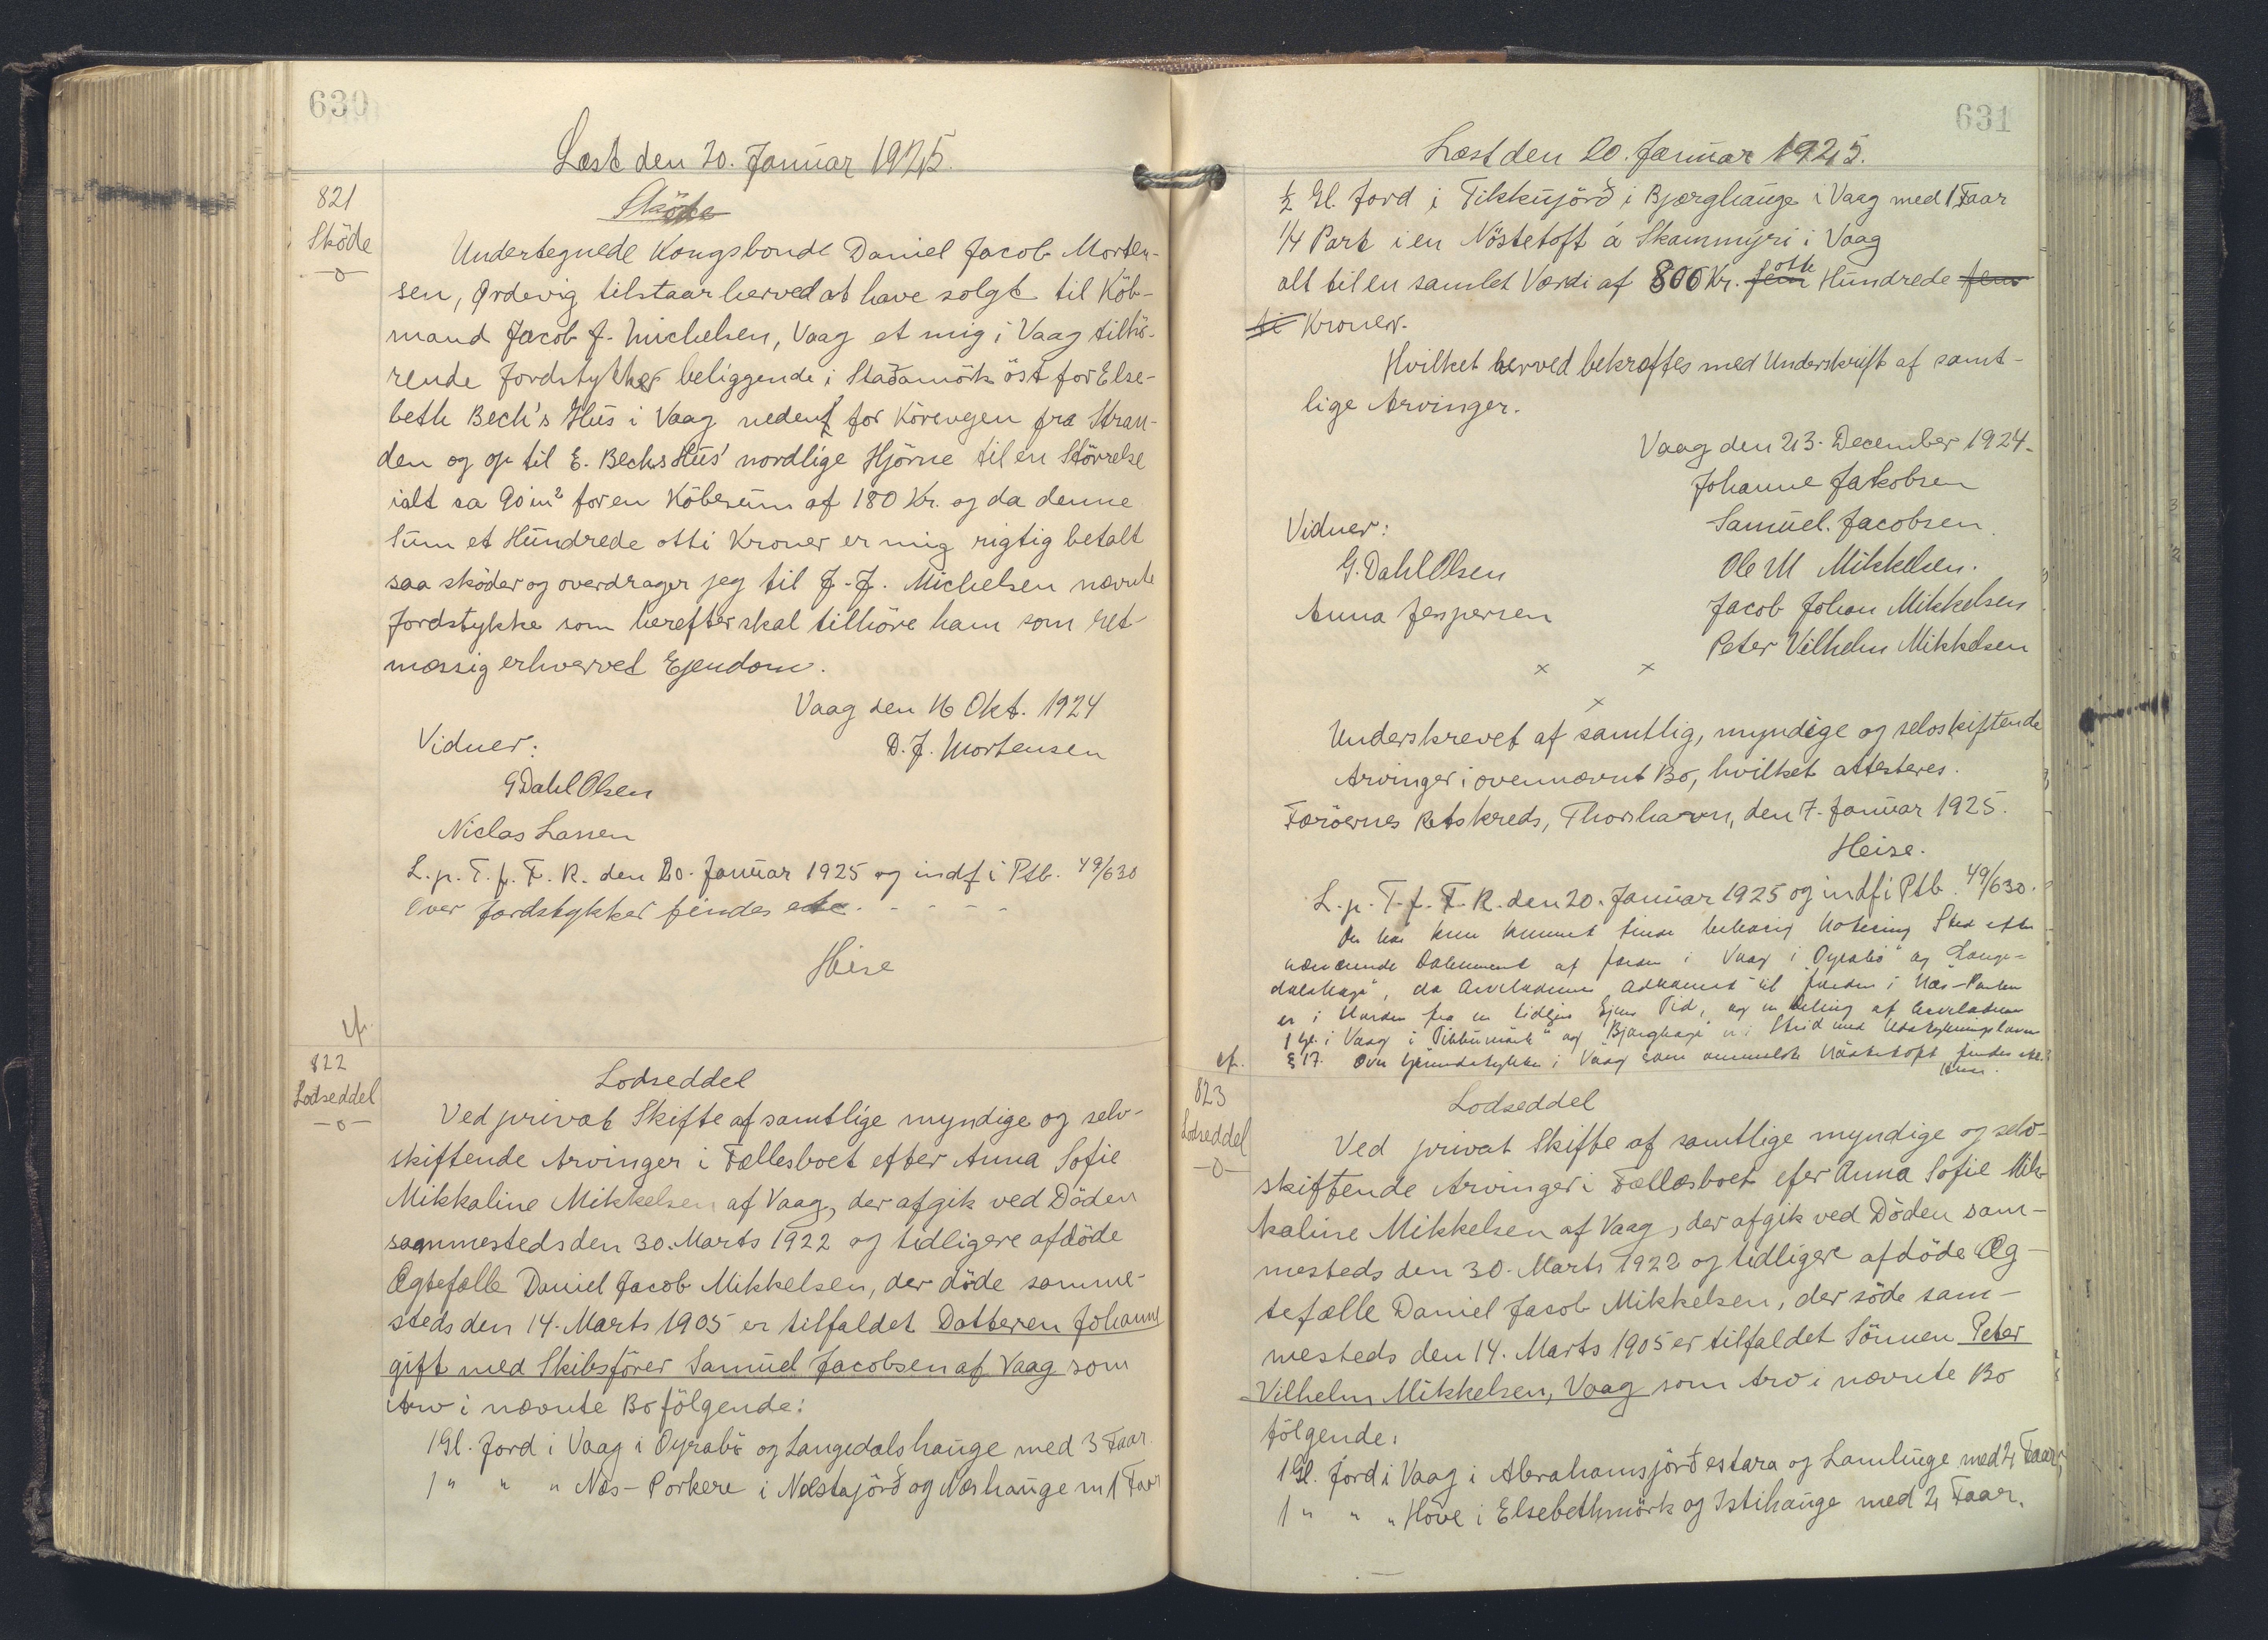 630
Læst den 20. Januar 1925.
821
Sköde
Sköde
Undertegnede Kongsbonde Daniel Jacob Morten-
sen, Ørdevig tilstaar herved at have solgt til Köb-
mand Jacob J. Michelsen, Vaag et mig i Vaag tilhö-
rende Jordstykke beliggende i Staðamörk öst for Else-
beth Bech's Hus i Vaag nedenf for Körevejen fra Stran-
den og op til E. Bechs Hus' nordlige Hjörne til en Störrelse
ialt ca 90 m² for en Köbesum af 180 Kr. og da denne
Sum et Hundrede otti Kroner er mig rigtig betalt
saa sköder og overdrager jeg til J. J. Michelsen nævnte
Jordstykke som herefter skal tilhöre ham som ret-
mæssig erhvervet Ejendom.
Vaag den 16 Okt. 1924
D. J. Mortensen
Vidner:
G Dahl Olsen
Niclas Larsen
L. p. T. f. F. R. den 20. Januar 1925 og indf i Ptb. 49/630
Over Jordstykket findes etc. - - - -
Heise
cf.
822
Lodseddel
Lodseddel
Ved privat Skifte af samtlige myndige og selv-
skiftende Arvinger i Fællesboet efter Anna Sofie
Mikkaline Mikkelsen af Vaag, der afgik ved Döden
sammesteds den 30. Marts 1922 og tidligere afdöde
Ægtefælle Daniel Jacob Mikkelsen, der döde samme-
steds den 14. Marts 1905 er tilfaldet Datteren Johanne
gift med Skibsförer Samuel Jacobsen af Vaag som
Arv i nævnte Bo fölgende:
1 Gl. Jord i Vaag i Oyrabö og Langedalshauge med 3 Faar
1 " " " Næs-Porkere i Næstajörð og Næshauge m 1 Faar
631
Læst den 20. Januar 1925.
½ Gl. Jord i Tikkujörð i Bjærghauge i Vaag med 1 Faar
1/4 Part i en Nöstetoft á Skammýri i Vaag
alt til en samlet Værdi af 800 Kr. fem otte Hundrede fem
ti Kroner.
Hvilket herved bekræftes med Underskrift af samt-
lige Arvinger.
Vaag den 23. December 1924.
Johanne Jakobsen
Samuel. Jacobsen
Ole M Mikkelsen.
Jacob Johan Mikkelsen
Peter Vilhelm Mikkelsen
Vidner:
G. Dahl Olsen
Anna Jespersen
x x
x
Underskrevet af samtlig, myndige og selvskiftende
Arvinger i ovennævnt Bo, hvilket attesteres.
Færöernes Retskreds, Thorshavn, den 7. Januar 1925.
Heise.
L. p. T. f. F. R. den 20. Januar 1925 og indf i Ptb. 49/630.
Der har kun kunnet finde Notering Sted efter
nærværende Dokument af Jorden i Vaag i "Oyrabö" og Lange-
dalshage", da Arveladerens Adkomst til Jorden i Næs-Porkere
er i Orden fra en tidligere Ejers Tid, og en Deling af Arveladerens
1 Gl. i Vaag i "Tikkumörk" og "Bjærghage" er i Strid med Udstykningsloven
§ 17. Over Grundstykket i Vaag som anmeldt Nöstetoft findes etc.
Heise.
cf.
823
Lodseddel
Lodseddel
Ved privat Skifte af samtlige myndige og selv-
skiftende Arvinger i Fællesboet efer Anna Sofie Mik-
kaline Mikkelsen af Vaag, der afgik ved Döden sam-
mesteds den 30. Marts 1922 og tidligere afdöde Æg-
tefælle Daniel Jacob Mikkelsen, der döde sam-
mesteds den 14. Marts 1905 er tilfaldet Sönnen Peter
Vilhelm Mikkelsen, Vaag som Arv i nævnte Bo
fölgende:
1 Gl. Jord i Vaag i Abrahamsjörð estara og Lamhuge med 2 Faar,
1 " " " Hove i Elsebethmörk og Istihauge med 2 Faar.